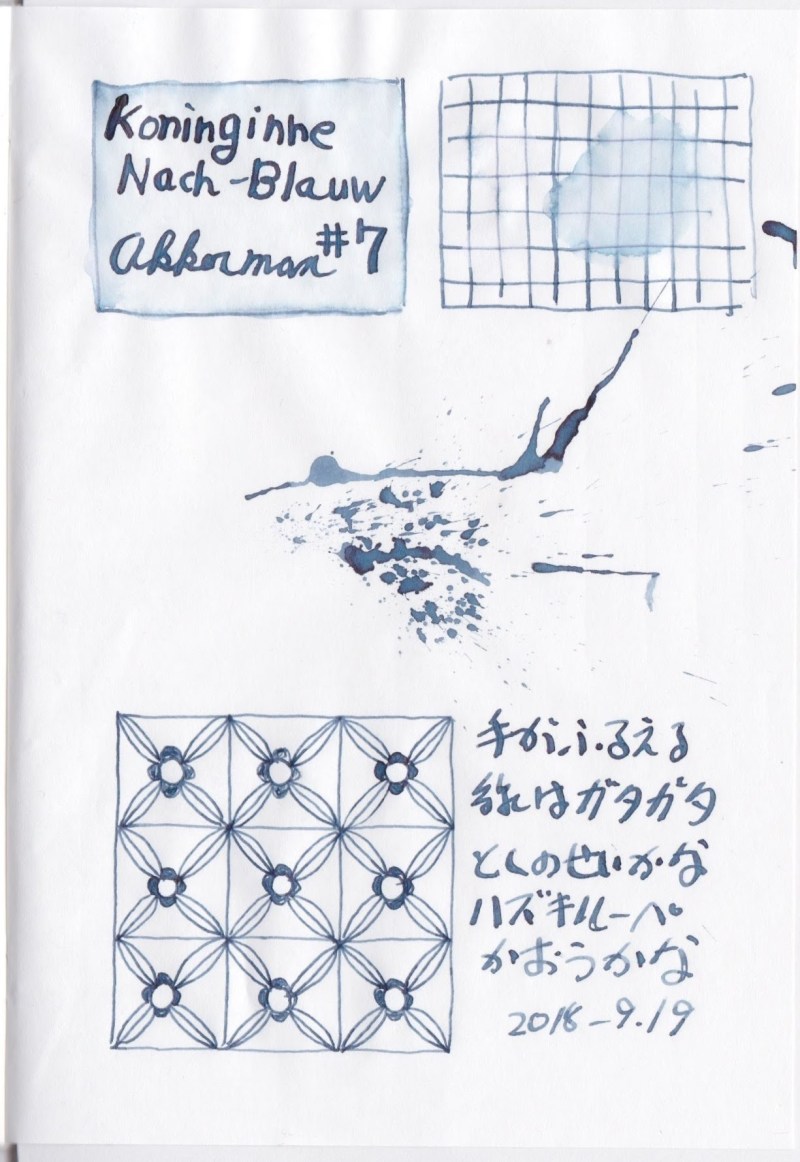 Koninginne
Nach-Blauw
Akkerman #7
手がふるえる
線はガタガタ
としのせいかな
ハズキルーペ
かおうかな
2018-9.19